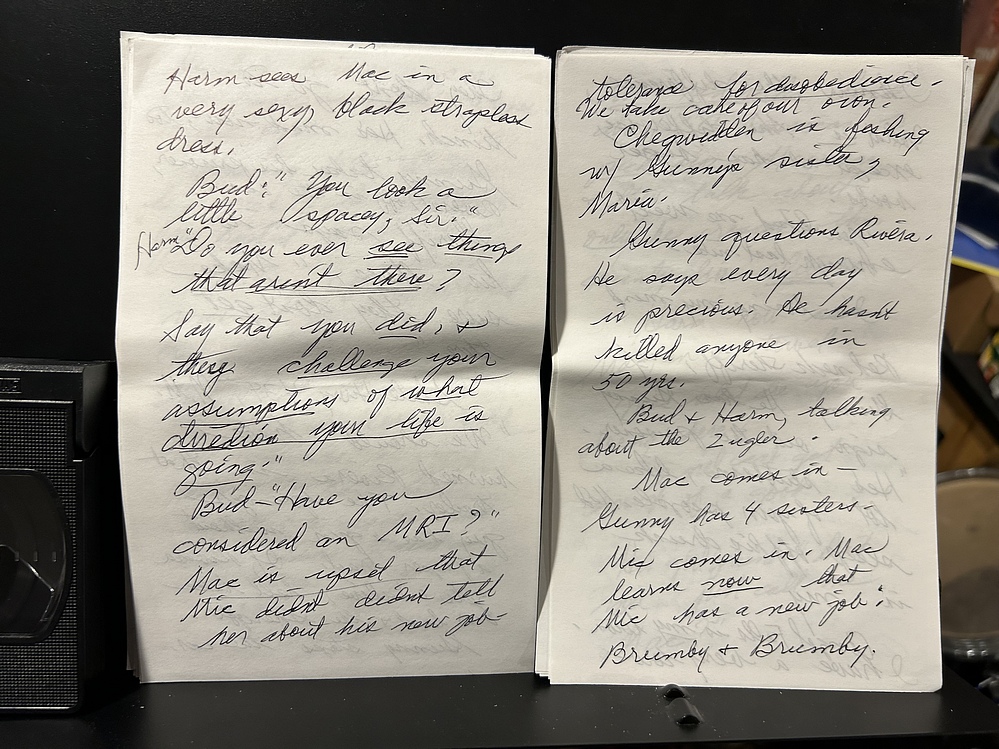 Harm sees Mac in a
very sexy black strapless
dress.
Bud: "You look a
little spacey, Sir."
Harm "Do you ever see things
that aren't there?
Say that you did, &
they challenge your
assumptions of what
direction your life is
going."
Bud - "Have you
considered an MRI?"
Mac is upset that
Mic didnt didnt tell
her about his new job
tolerance for disobedience.
We take care of our own.
Chegwidden is fishing
w/ Gunny's sister,
Maria.
Gunny questions Rivera.
He says every day
is precious. He hasn't
killed anyone in
50 yrs.
Bud & Harm, talking
about the Zugler.
Mac comes in -
Gunny has 4 sisters.
Mic comes in. Mac
learns now that
Mic has a new job:
Brumby & Brumby.